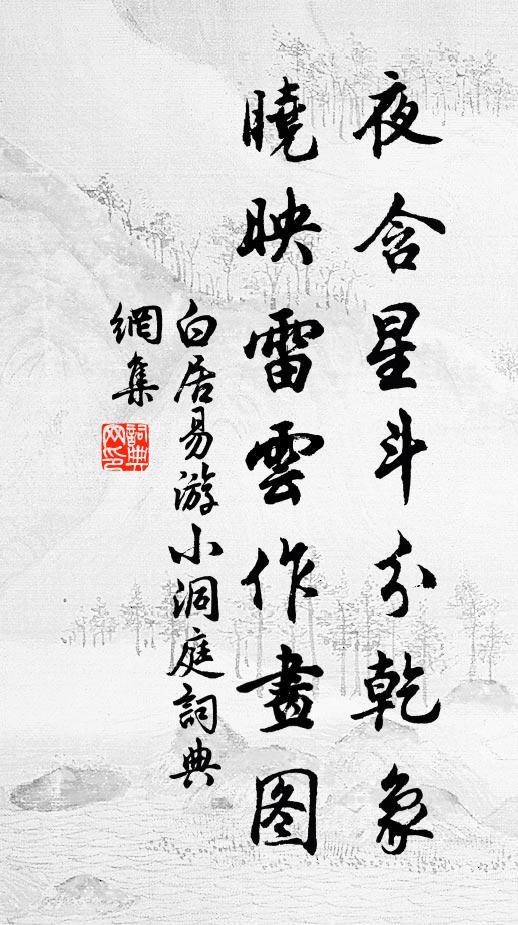 夜含星斗分乾象
曉映雷雲作畫图
白居易游小洞庭詞典
網集
詞典
网印